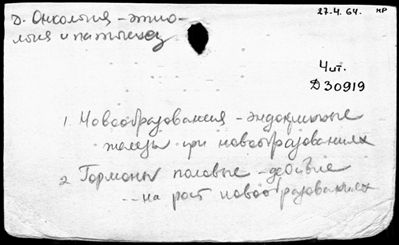 27.4.64. НР
Д. Онкология – этио-
логия и патогенез
Чит.
Д 30919
1. Новообразования – эндокринные
железы при новообразованиях
2. Гормоны половые – действие
-- на рост новообразованиях